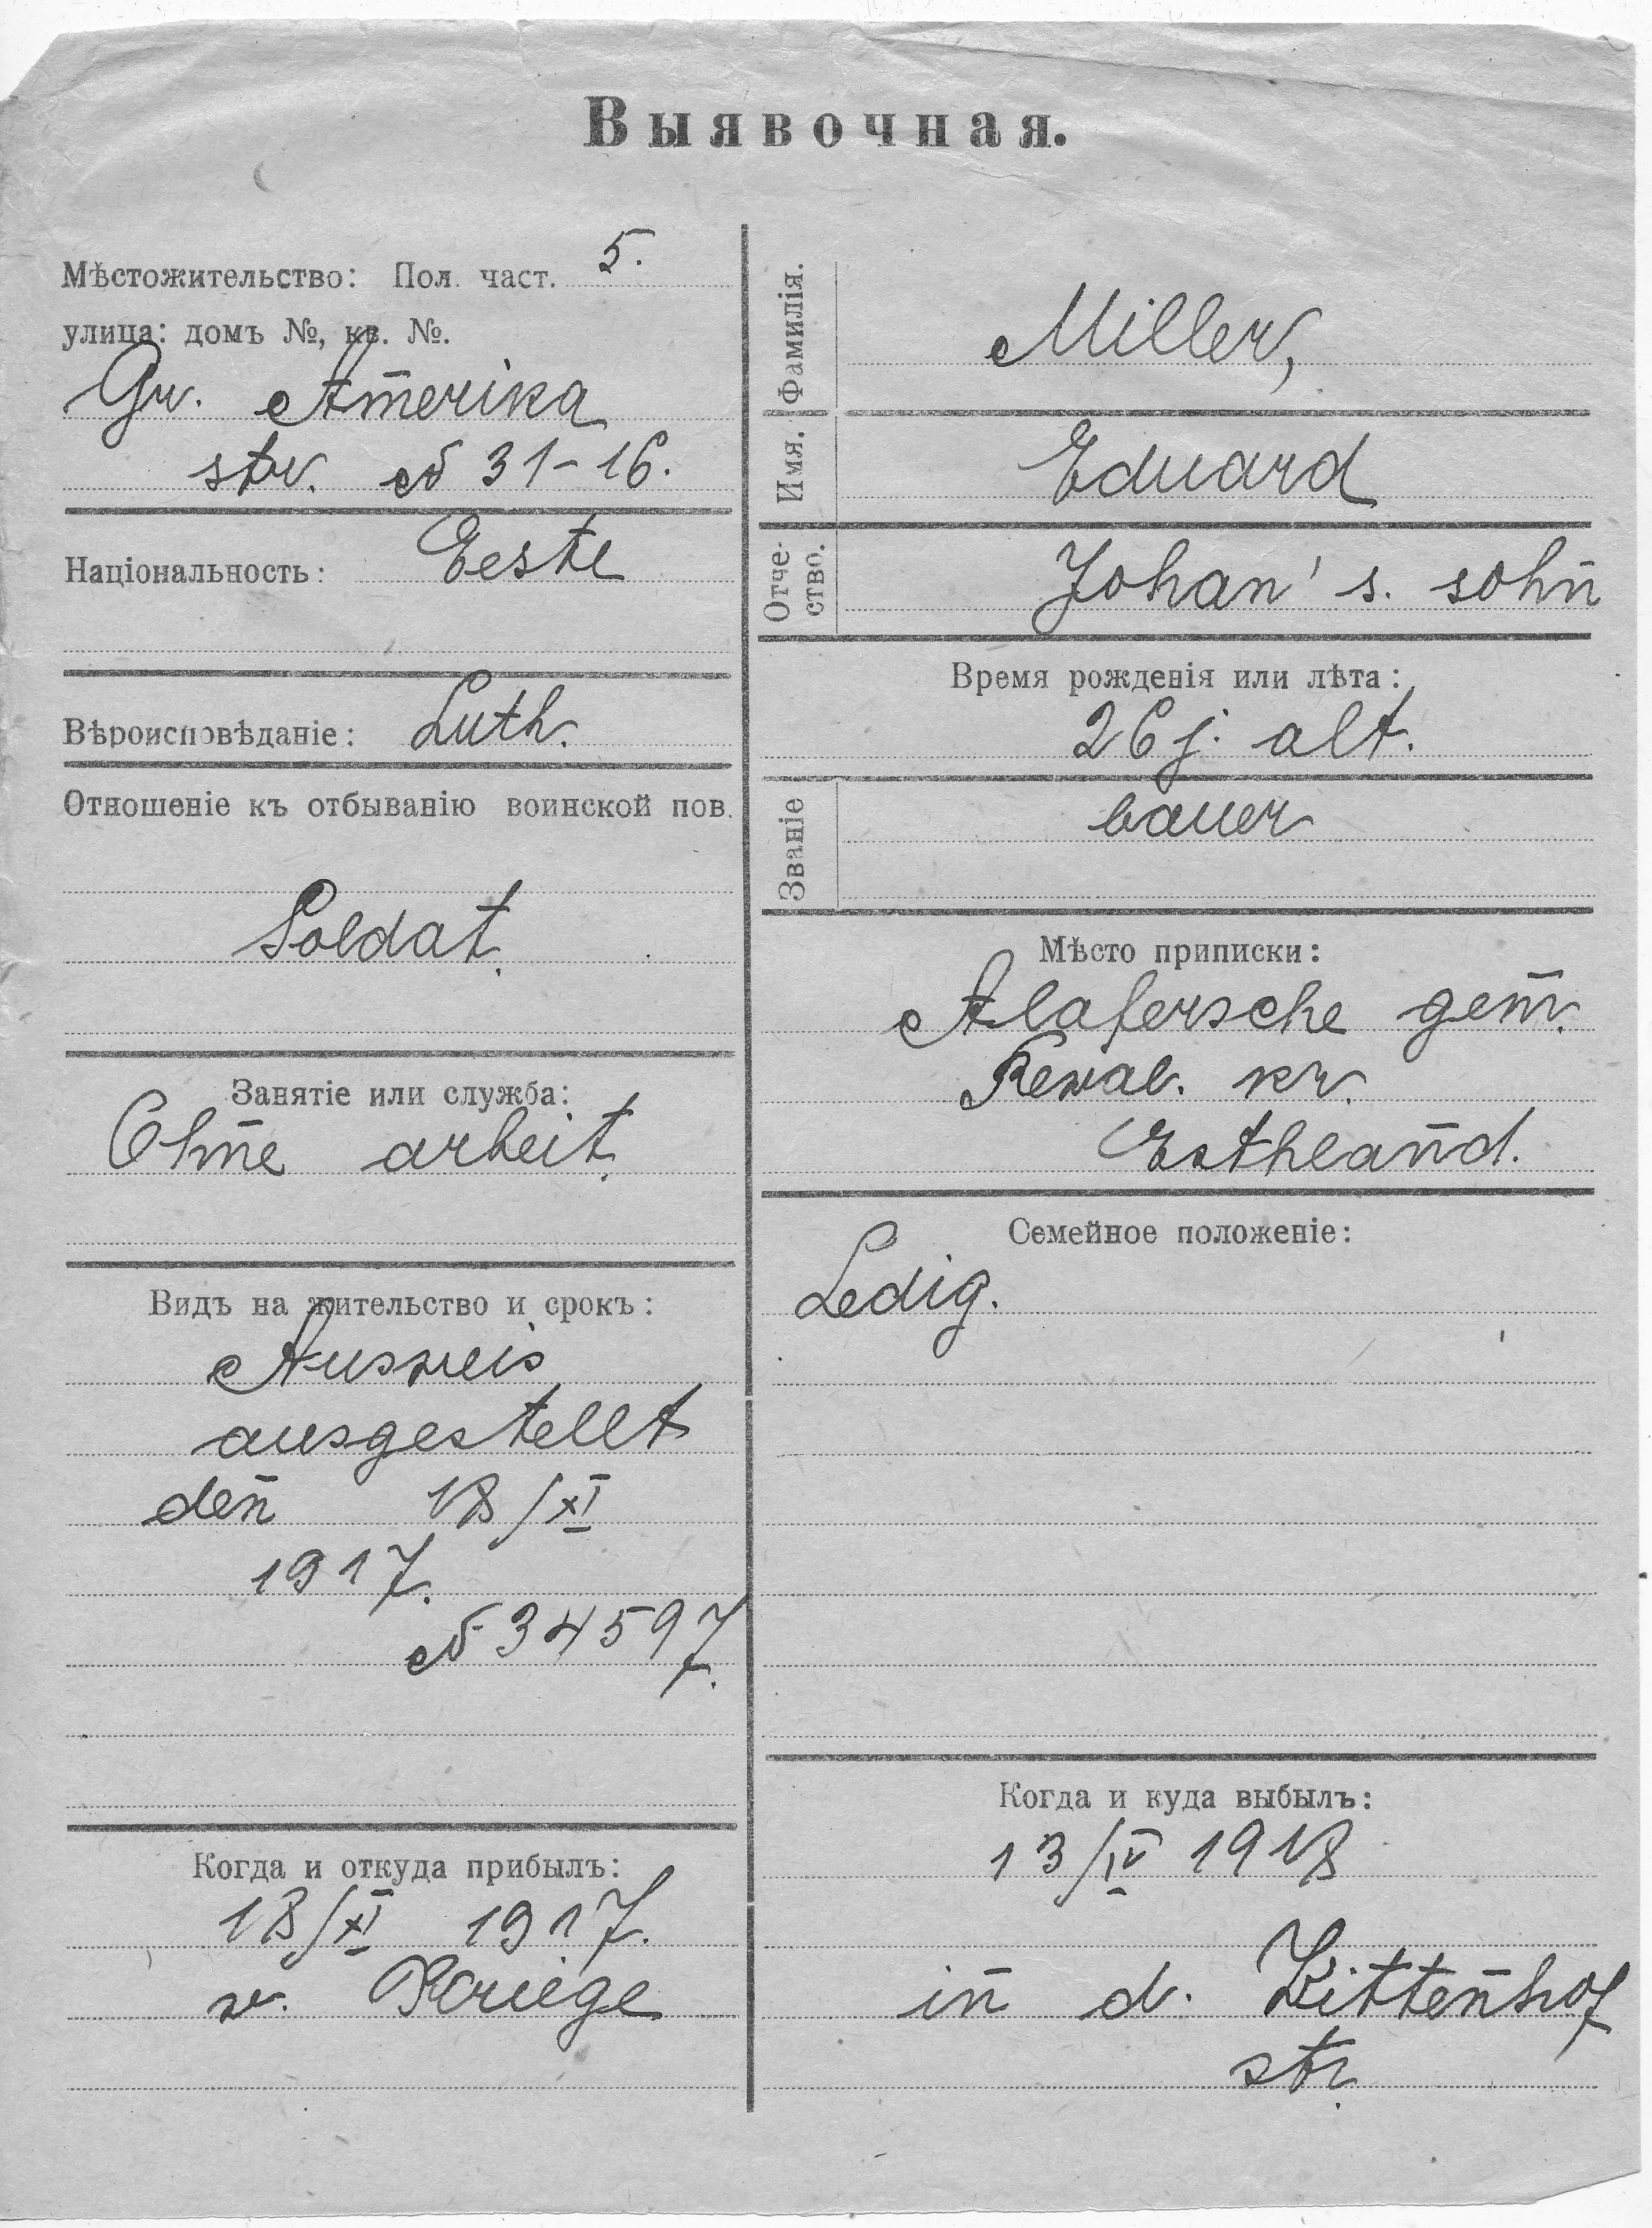 Выявочная.
Мѣстожительство: Пол. част. 5.
улица: домъ №, кв. №.
Gr. Amerika
str. № 31-16.
Національность: Eeste
Вѣроисповѣданіе: Luth.
Отношеніе къ отбыванію воинской пов.
Soldat.
Занятіе или служба:
Ohne arbeit.
Видъ на жительство и срокъ:
Ausweis
ausgestellt
den 18/XI
1917.
№ 34597.
Когда и откуда прибылъ:
18/XI 1917.
v. Kriege
Фамилія. Miller,
Имя. Eduard
Отче-
ство. Johan's. sohn
Время рожденія или лѣта:
26 j. alt.
Званіе bauer
Мѣсто приписки:
Alafersche gem.
Rewal. kr.
Esthland.
Семейное положеніе:
Ledig.
Когда и куда выбылъ:
13/IV 1918
in d. Kittenhof
str.